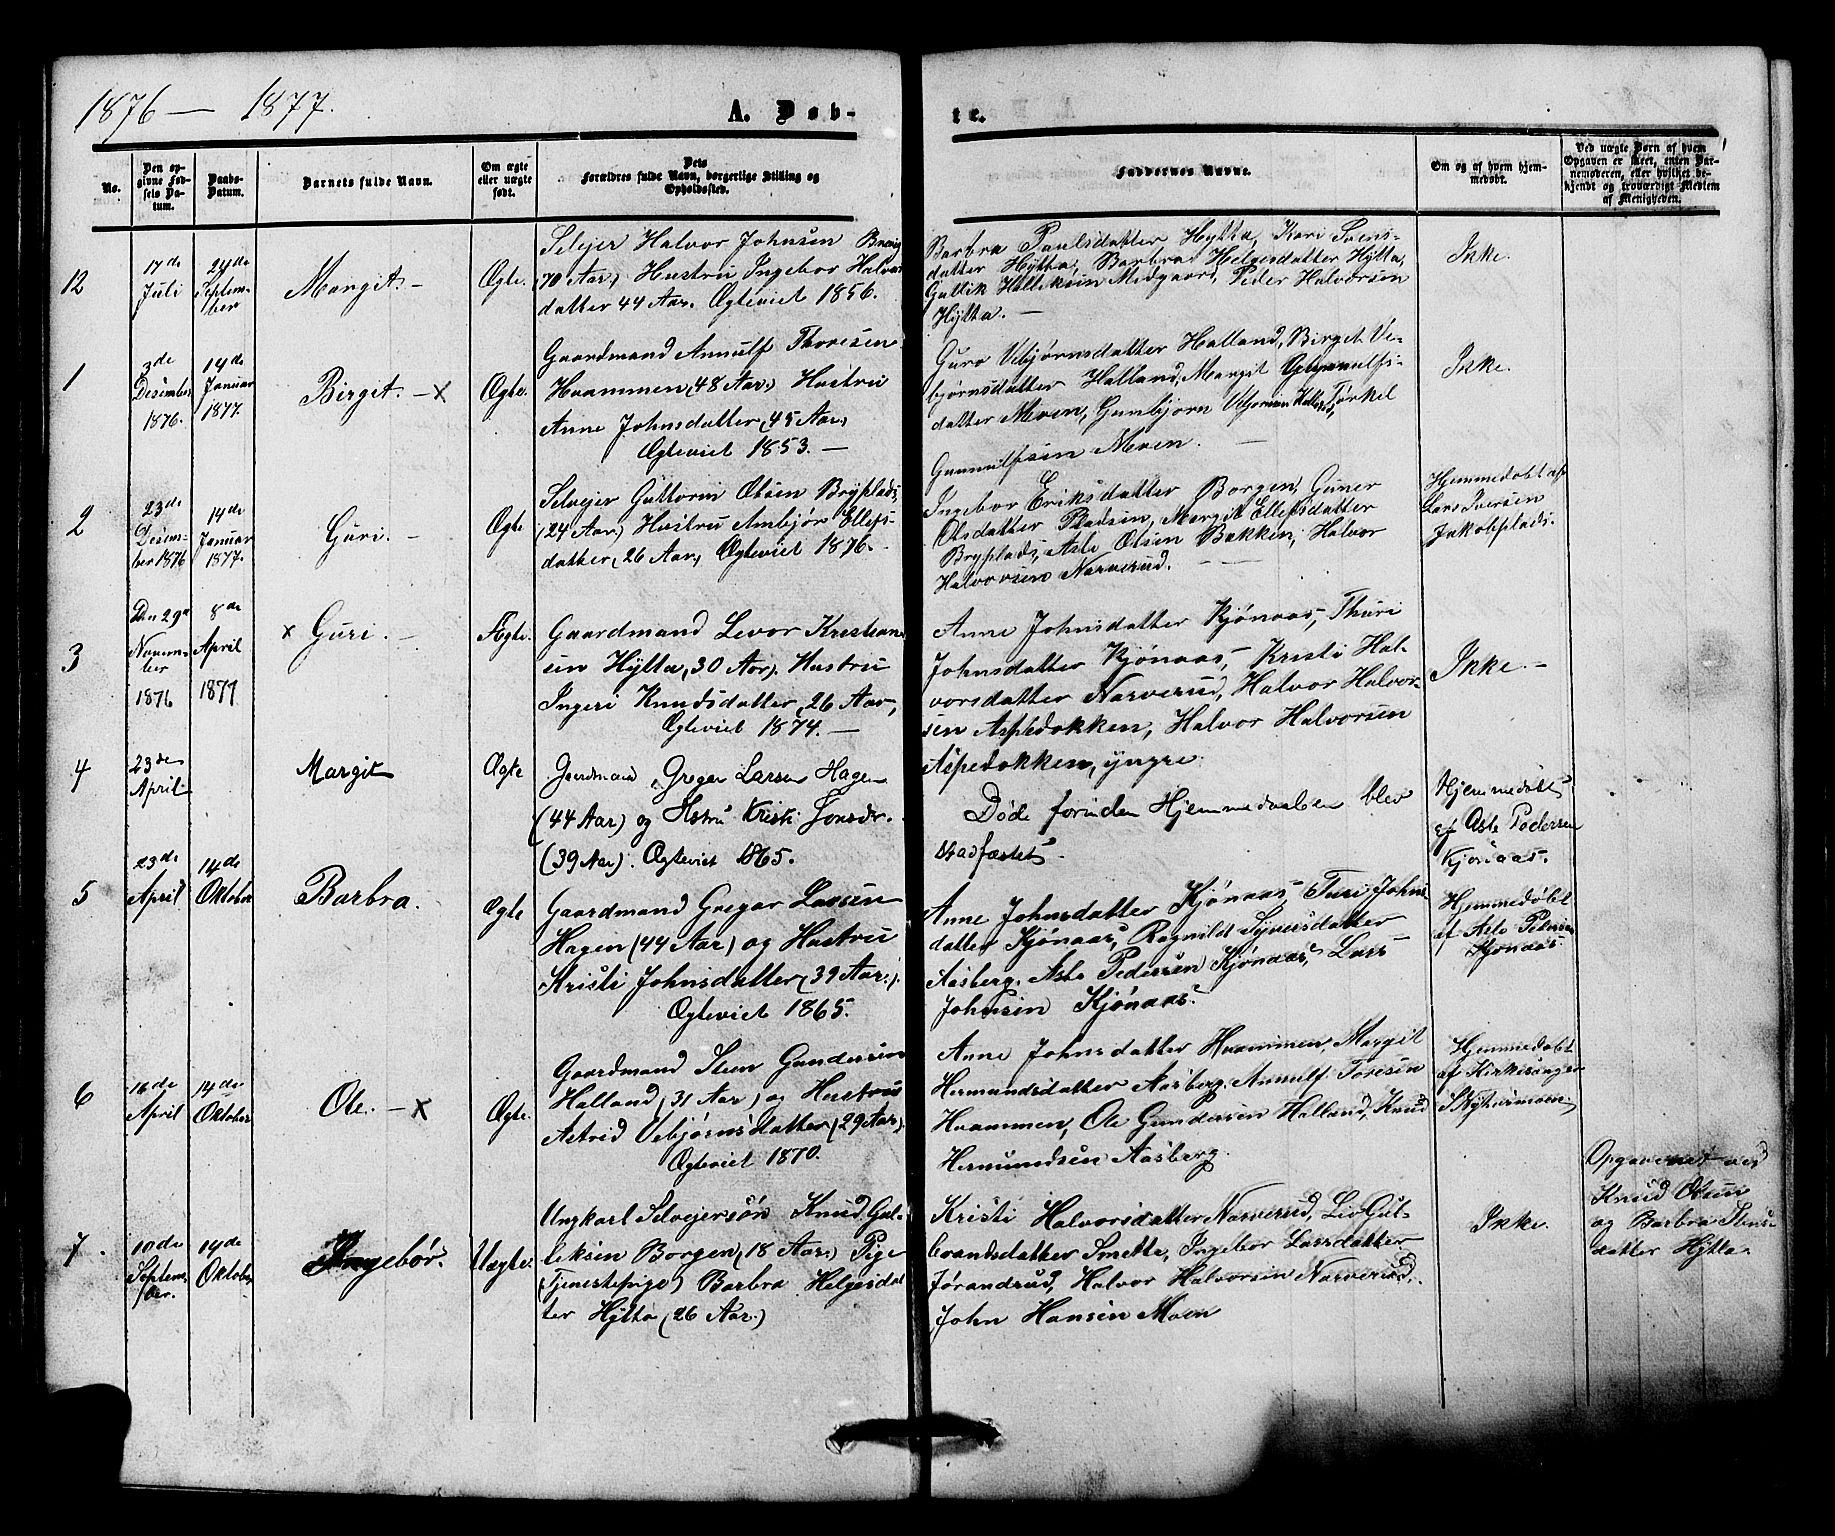 1876 — 1877.
A. Døb-
te.
No.
Den op-
givne Fød-
sels Da-
tum.
Daabs-
Datum.
Barnets fulde Navn.
Om ægte
eller uægte
født.
Dets
Forældres fulde Navn, borgerlige Stilling og
Opholdssted.
Faddernes Navne.
Om og af hvem hjem-
medøbt.
Ved uægte Børn af hvem
Opgaven er skeet, enten Bar-
nemoderen, eller hvilket be-
kjendt og troværdigt Medlem
af Menigheden.
12
17de
Juli
24de
Septem-
ber
Margit. —
Ægte.
Selvejer Halvor Johnsen
(70 Aar) Hustru Ingebor Halvors
datter 44 Aar. Ægteviet 1856.
Barbra Paulsdatter Hytta, Kari Svens-
datter Hytta, Barbra Helgesdatter Hytta,
Gullik Halliksen Medgaard, Peder Halvorsen
Hytta. —
Ikke.
1
3de
Desember
1876.
14de
Januar
1877.
Birgit. — x
Ægte.
Gaardmand Annulf Thoresen
Hvammen (48 Aar) Hustru
Anne Johnsdatter, 45 Aar,
Ægteviet 1853. —
Guro Vebjørnsdatter Halland, Birget Ve-
bjørnsdatter Halland, Margit Gunnulfs-
datter Moen, Gunbjørn Halland, Torkel
Gunnulfsen Moen. —
Ikke.
2
23de
Desem-
ber 1876
14de
Januar
1877.
Guri. —
Ægte
Selvejer Guttorm Olsen Bryplads,
(24 Aar) Hustru Ambjør Ellefs-
datter, 26 Aar, Ægteviet 1876.
Ingebor Eriksdatter Borgen, Guner
Olsdatter Pladsen, Margit Ellefsdatter
Bryplads, Asle Olsen Bakken, Halvor
Halvorsen Narverud.
Hjemmedøbt af
Lars Iversen
Jakobplads.
3
Den 29de
Novem-
ber
1876
8de
April
1877
x Guri. —
Ægte.
Gaardmand Levor Kristian-
sen Hytta, 30 Aar). Hustru
Ingeri Knudsdatter, 26 Aar,
Ægteviet 1874. —
Anne Johnsdatter Kjønaas, Thuri
Johnsdatter Kjønaas, Kristi Hal-
vorsdatter Narverud, Halvor Halvor-
sen Aspedokken, Halvor Halvorsen
Aspedokken, yngre.
Ikke. —
4
23de
April
Margit
Ægte
Gaardmand Gregar Larsen Hagen
(44 Aar) og Hstru Kristi Jonsdr.
(39 Aar). Ægteviet 1865.
Døde forinden Hjemmedaaben blev
stadfæstet.
Hjemmedøbt
af Asle Pedersen
Kjønaas.
5
23de
April
14de
Oktober
Barbra.
Ægte
Gaardmand Gregar Larsen
Hagen (44 Aar) og Hustru
Kristi Johnsdatter (39 Aar.).
Ægteviet 1865.
Anne Johnsdatter Kjønaas, Turi Johns
datter Kjønaas, Ragnild Syversdatter
Aasberg, Asle Pedersen Kjønaas, Lars
Johnsen Kjønaas.
Hjemmedøbt
af Asle Pedersen
Kjønaas.
6
16de
April
14de
Oktober
Ole. — x
Ægte.
Gaardmand Sten Gundersen
Halland, 31 Aar) og Hustru
Astrid Vebjørnsdatter (29 Aar).
Ægteviet 1870.
Anne Johnsdatter Hvammen, Margit
Hermundsdatter Aasberg, Annulf Toresen
Hvammen, Ole Gundersen Halland, Knud
Hermundsen Aasberg.
Hjemmedøbt
af Kirkesanger
7.
10de
Septem-
ber.
14de
Oktober
Ingebør.
Uægte.
Ungkarl Selvejersøn Knud Gul-
leksen Borgen (18 Aar.) Pige
(Tjenestepige) Barbra Helgesdat
ter Hytta (26 Aar.)
Kristi Halvorsdatter Narverud, Liv Gul-
brandsdatter Smette, Ingebor Larsdatter
Jørandrud, Halvor Halvorsen Narverud,
John Hansen Moen
Ikke.
Opgavenet ved
Knud Olsen
og Barbra Stens-
datter Hytta.